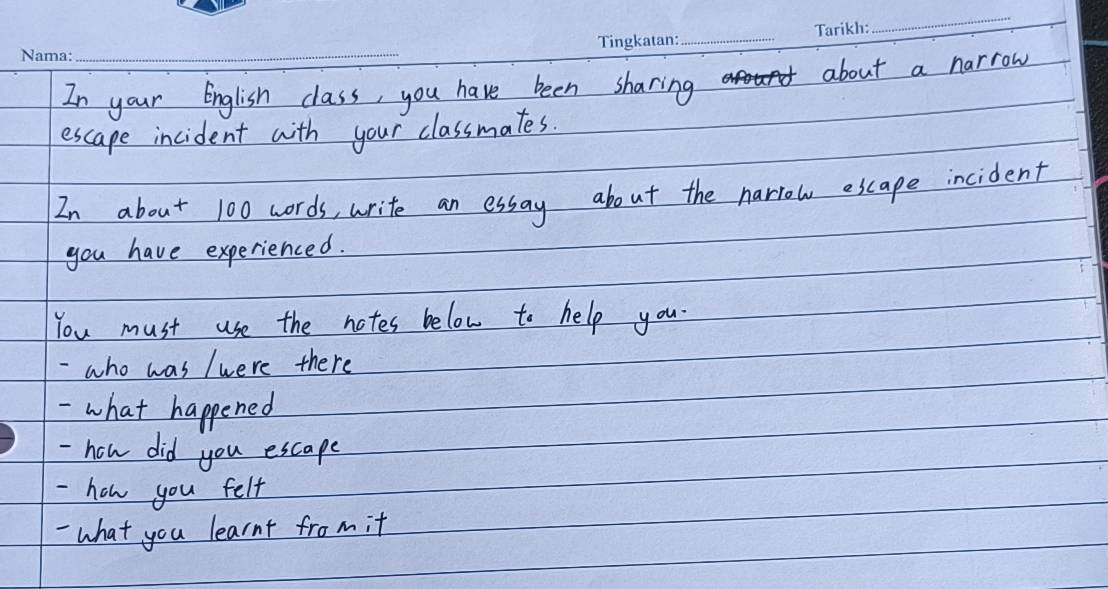 Nama: Tingkatan: Tarikh:
In your English class, you have been sharing around about a narrow
escape incident with your classmates.
In about 100 words, write an essay about the narrow escape incident
you have experienced.
You must use the notes below to help you.
- who was / were there
- what happened
- how did you escape
- how you felt
- what you learnt from it